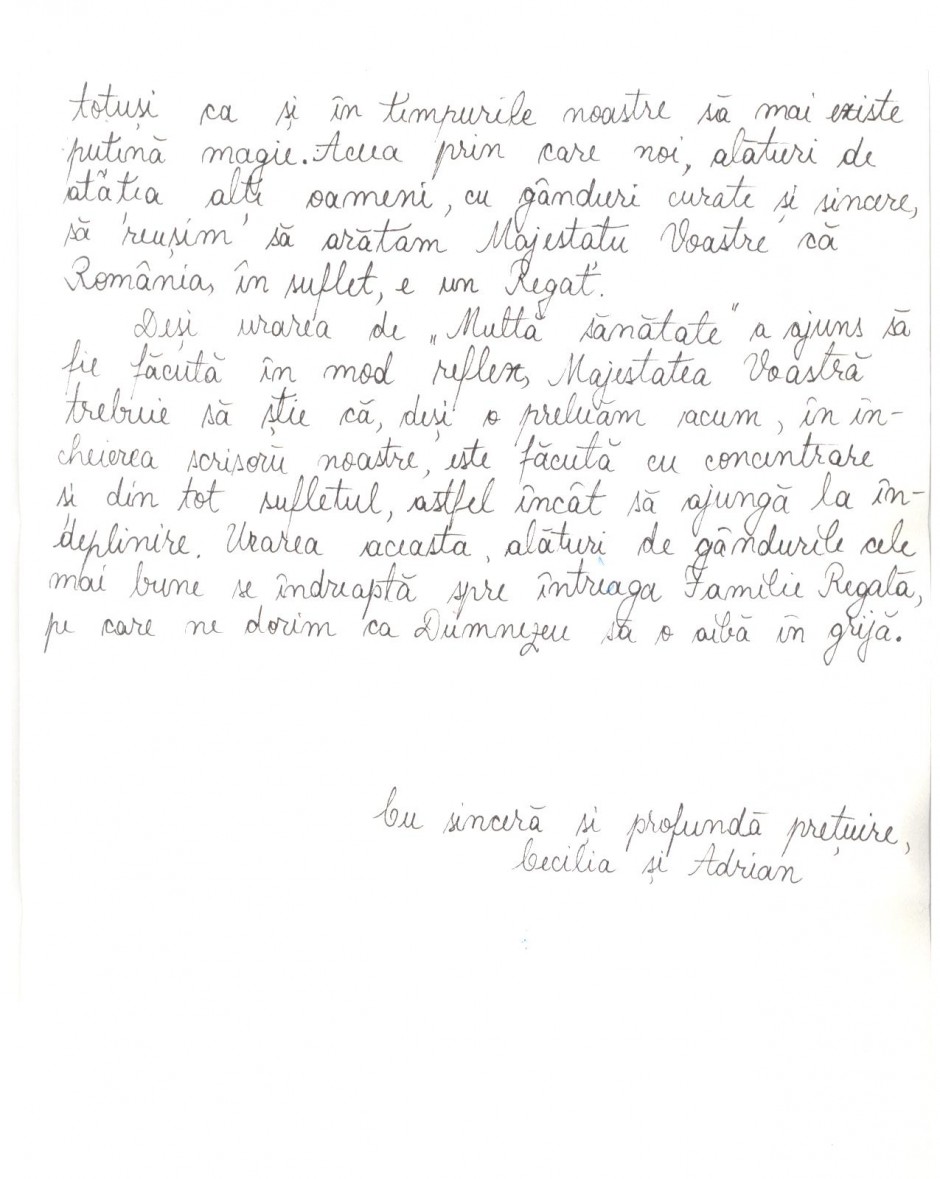 totuși ca și în timpurile noastre să mai existe
puțină magie. Aceea prin care noi, alături de
atâtea alți oameni, cu gânduri curate și sincere,
să reușim să arătam Majestatu Voastre că
România, în suflet, e un Regat.
Deși urarea de „Multă sănătate" a ajuns să
fie făcută în mod reflex, Majestatea Voastră
trebuie să știe că, deși o preluăm acum, în în-
cheierea scrisorii noastre, este făcută cu concentrare
și din tot sufletul, astfel încât să ajungă la în-
deplinire. Urarea aceasta, alături de gândurile cele
mai bune se îndreaptă spre întreaga Familie Regală,
pe care ne dorim ca Dumnezeu să o aibă în grijă.
Cu sinceră și profundă prețuire,
Cecilia și Adrian